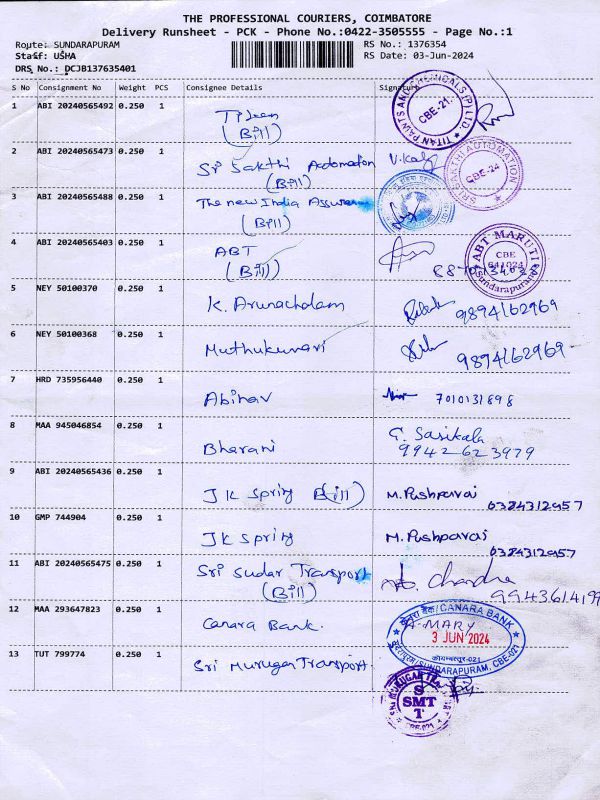 THE PROFESSIONAL COURIERS, COIMBATORE
Delivery Runsheet - PCK - Phone No.:0422-3505555 - Page No.:1
Route: SUNDARAPURAM
RS No.: 1376354
Staff: USHA
RS Date: 03-Jun-2024
DRS No.: DCJB137635401
S No Consignment No Weight PCS Consignee Details Signature
1 ABI 20240565492 0.250 1
(Bill)
TITAN PAINTS AND CHEMICALS (P) LTD
CBE-21.
2 ABI 20240565473 0.250 1 Sri Sakthi Automation
(Bill)
SRI SAKTHI AUTOMATION
CBE-24
3 ABI 20240565488 0.250 1 The new India Assurance
(Bill)
4 ABI 20240565403 0.250 1 ABT
(Bill)
ABT MARUTI
CBE
641024
Sundarapuram
5 NEY 50100370 0.250 1 K. Arunachalam
9894162969
6 NEY 50100368 0.250 1 Muthukumari
9894162969
7 HRD 735956440 0.250 1 Abinav
7010131898
8 MAA 945046854 0.250 1 Bharani
G. Sasikala
9942623979
9 ABI 20240565436 0.250 1 JK Spring (Bill) M. Pushpavai
6384312957
10 GMP 744904 0.250 1 JK Spring M. Pushpavai
6384312957
11 ABI 20240565475 0.250 1 Sri Sudar Transport
(Bill)
Chandra
12 MAA 293647823 0.250 1 Canara Bank.
केनरा बैंक/CANARA BANK
MARY
3 JUN 2024
कोयम्बत्तूर-021
SUNDARAPURAM, CBE-021
13 TUT 799774 0.250 1 Sri Murugan Transport.
SMT
CBE-021